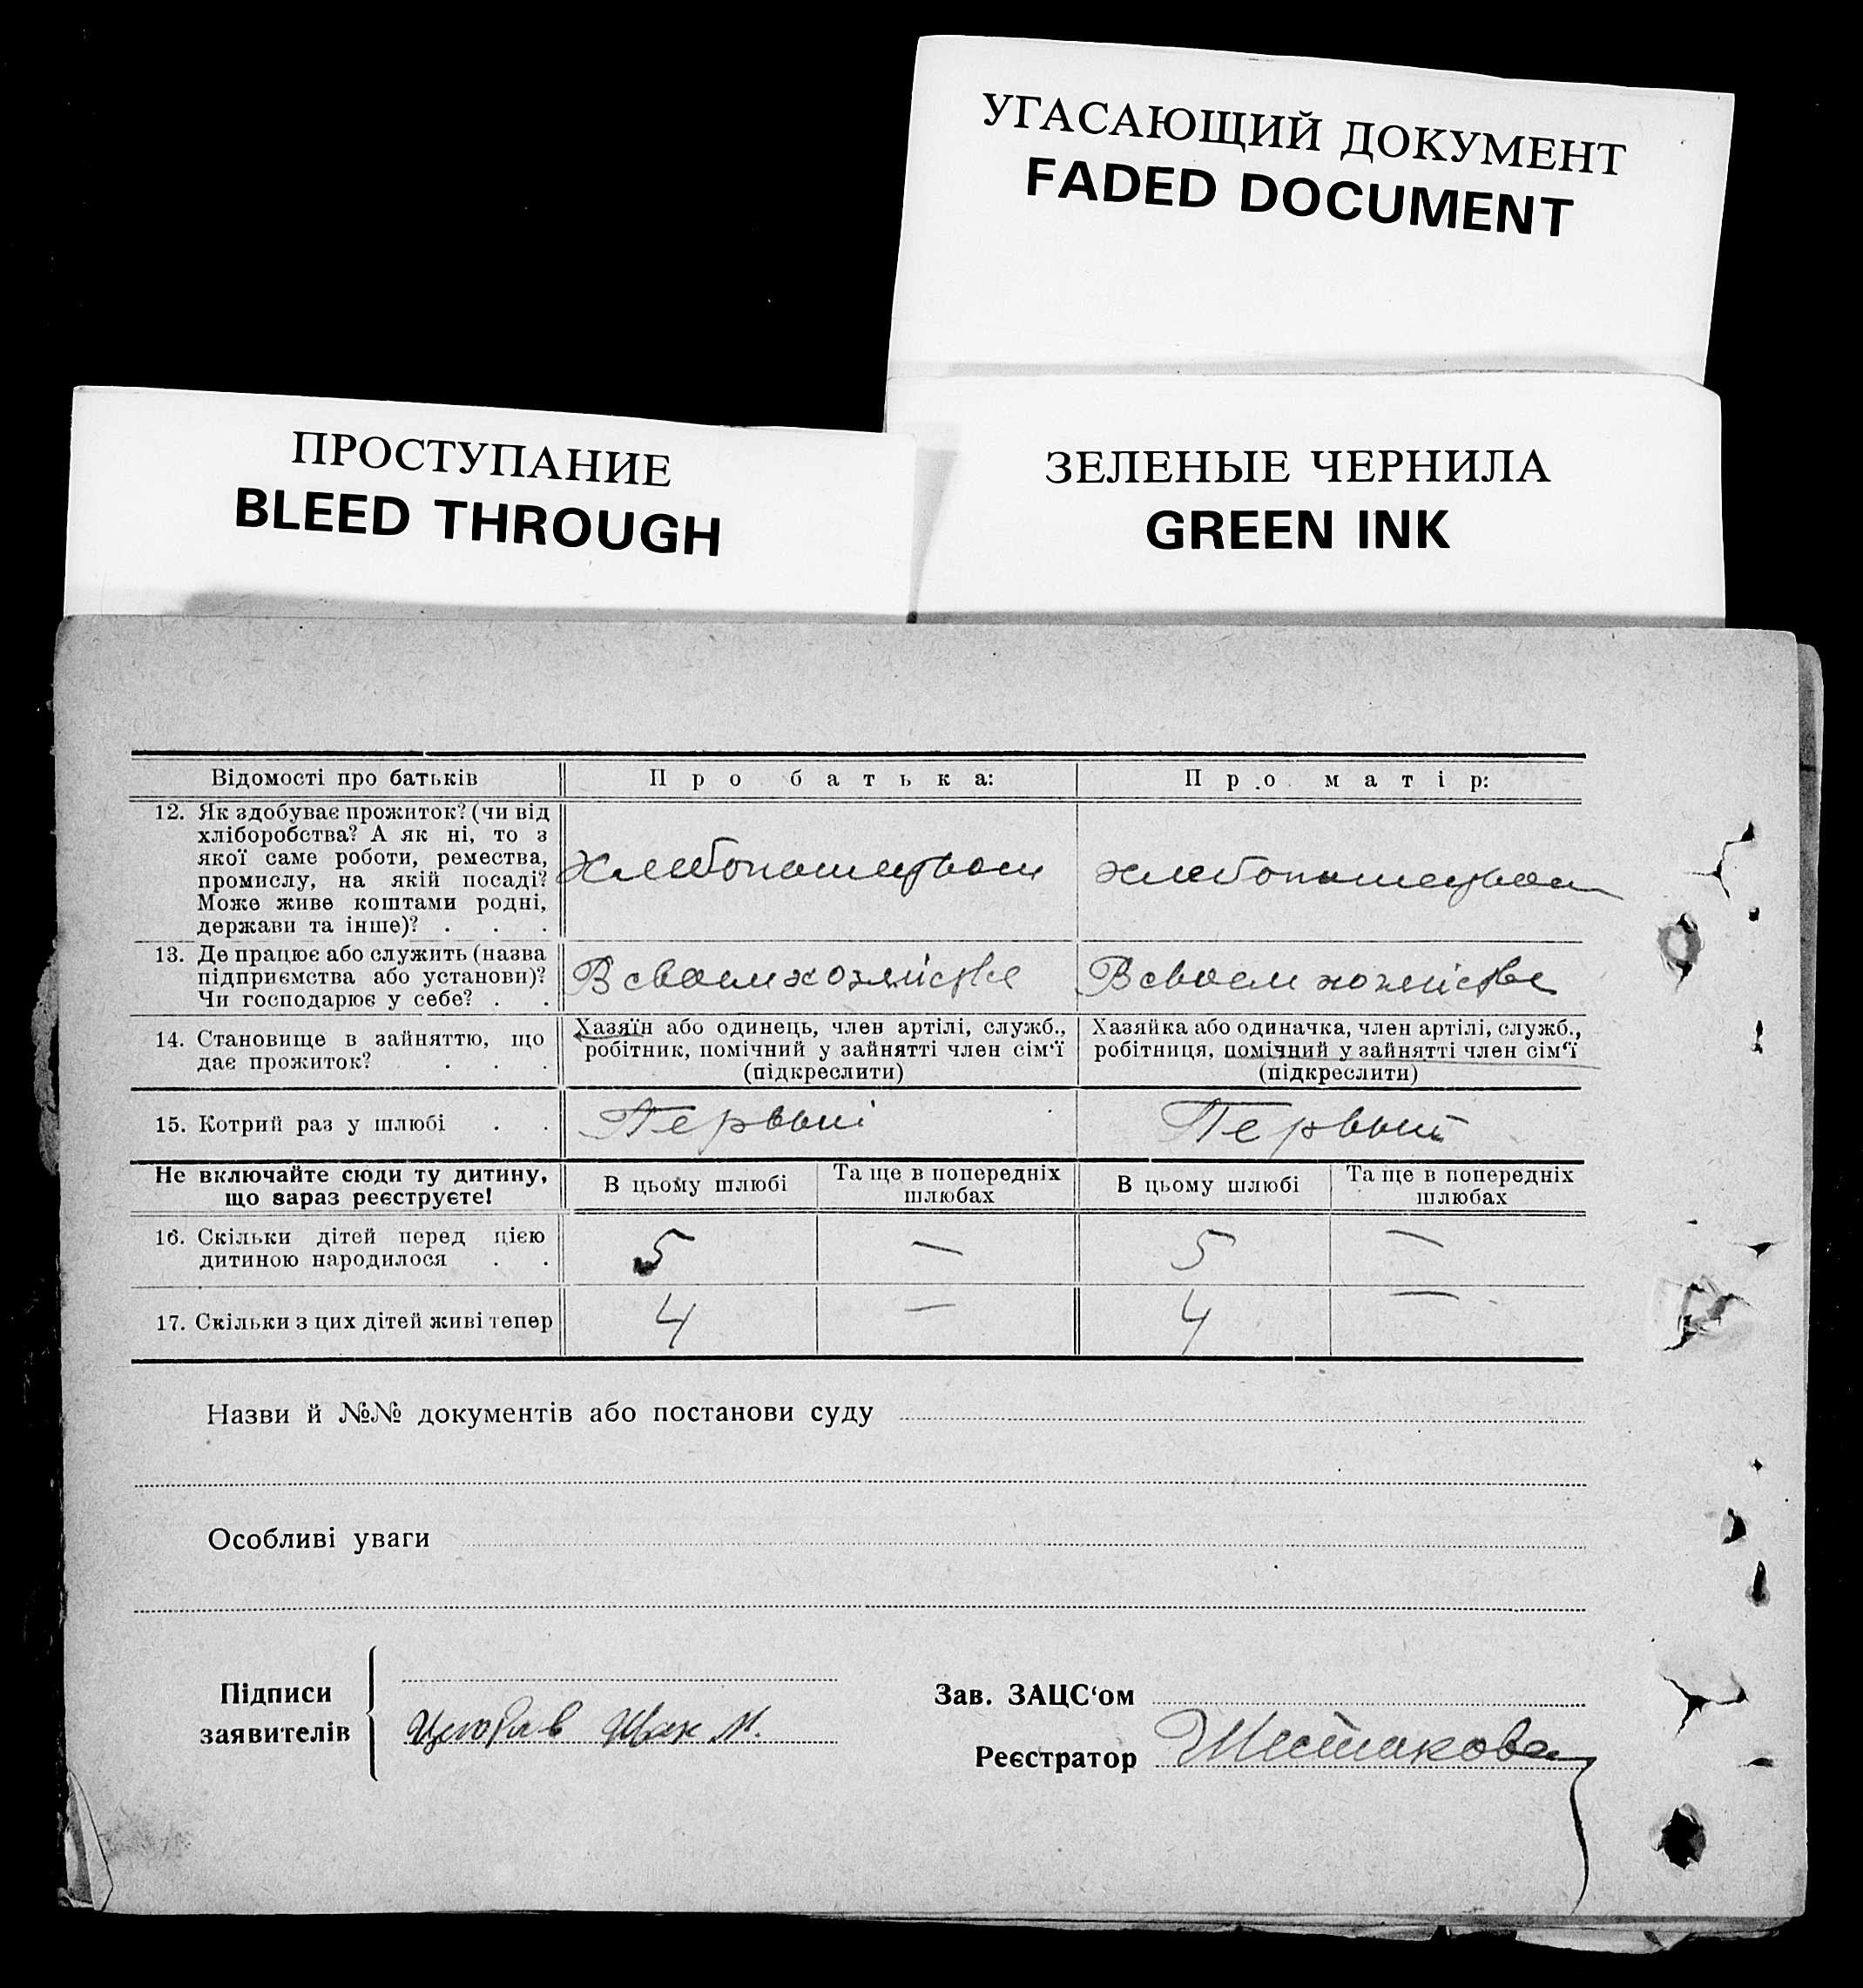 УГАСАЮЩИЙ ДОКУМЕНТ
FADED DOCUMENT
ПРОСТУПАНИЕ
BLEED THROUGH
ЗЕЛЕНЫЕ ЧЕРНИЛА
GREEN INK
Відомості про батьків
Про батька:
Про матір:
12. Як здобуває прожиток? (чи від
хліборобства? А як ні, то з
якої саме роботи, ремества,
промислу, на якій посаді?
Може живе коштами родні,
держави та інше)? . . .
13. Де працює або служить (назва
підприємства або установи)?
Чи господарює у себе? . .
В своем хозяйстве
В своем хозяйстве
14. Становище в зайняттю, що
дає прожиток? . . .
Хазяїн або одинець, член артілі, служб.,
робітник, помічний у зайнятті член сім'ї
(підкреслити)
Хазяйка або одиначка, член артілі, служб.,
робітниця, помічний у зайнятті член сім'ї
(підкреслити)
15. Котрий раз у шлюбі . .
Первый
Первый
Не включайте сюди ту дитину,
що зараз реєструєте!
В цьому шлюбі
Та ще в попередніх
шлюбах
В цьому шлюбі
Та ще в попередніх
шлюбах
16. Скільки дітей перед цією
дитиною народилося . .
5 — 5 —
17. Скільки з цих дітей живі тепер
4 — 4 —
Назви й №№ документів або постанови суду
Особливі уваги
Підписи
заявителів
Зав. ЗАЦС'ом
Реєстратор Шестакова